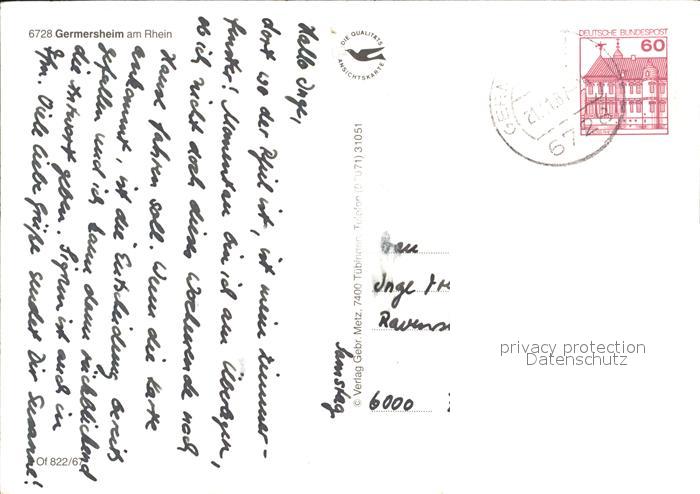 6728 Germersheim am Rhein
Hallo Inge,
dort wo der Pfeil ist, ist mein Zimmer-
fenster! Momentan bin ich am Überlegen,
ob ich nicht doch dieses Wochenende nach
Hause fahren soll. Wenn die Karte
ankommt, ist die Entscheidung bereits
gefallen und ich kann dann rückblickend
die Antwort geben. Sigrun ist auch in
Ffm. Viele liebe Grüße sendet Dir Susanne!
Samstag
Of 822/67
DIE QUALITÄTS
ANSICHTSKARTE
© Verlag Gebr. Metz, 7400 Tübingen, Telefon (07071) 31051
DEUTSCHE BUNDESPOST
60
6728
Frau
Inge
6000
privacy protection
Datenschutz